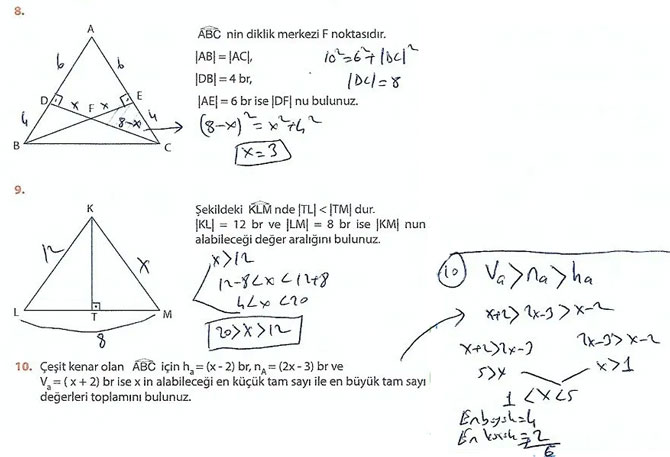 8.
A
6
6
D
x
F
x
E
4
8-x
4
B
C
ABC nin diklik merkezi F noktasıdır.
|AB| = |AC|,
10²=6²+|DC|²
|DB| = 4 br,
|DC|=8
|AE| = 6 br ise |DF| nu bulunuz.
(8-x)²=x²+4²
x=3
9.
K
12
x
L
T
M
8
Şekildeki KLM nde |TL| < |TM| dur.
|KL| = 12 br ve |LM| = 8 br ise |KM| nun
alabileceği değer aralığını bulunuz.
x>12
12-8<x<12+8
4<x<20
20>x>12
10. Çeşit kenar olan ABC için hₐ = (x - 2) br, n_A = (2x - 3) br ve
Vₐ = ( x + 2) br ise x in alabileceği en küçük tam sayı ile en büyük tam sayı
değerleri toplamını bulunuz.
10
Va>na>ha
x+2>2x-3>x-2
x+2>2x-3
2x-3>x-2
5>x
x>1
1<x<5
En büyük=4
En küçük=2
6